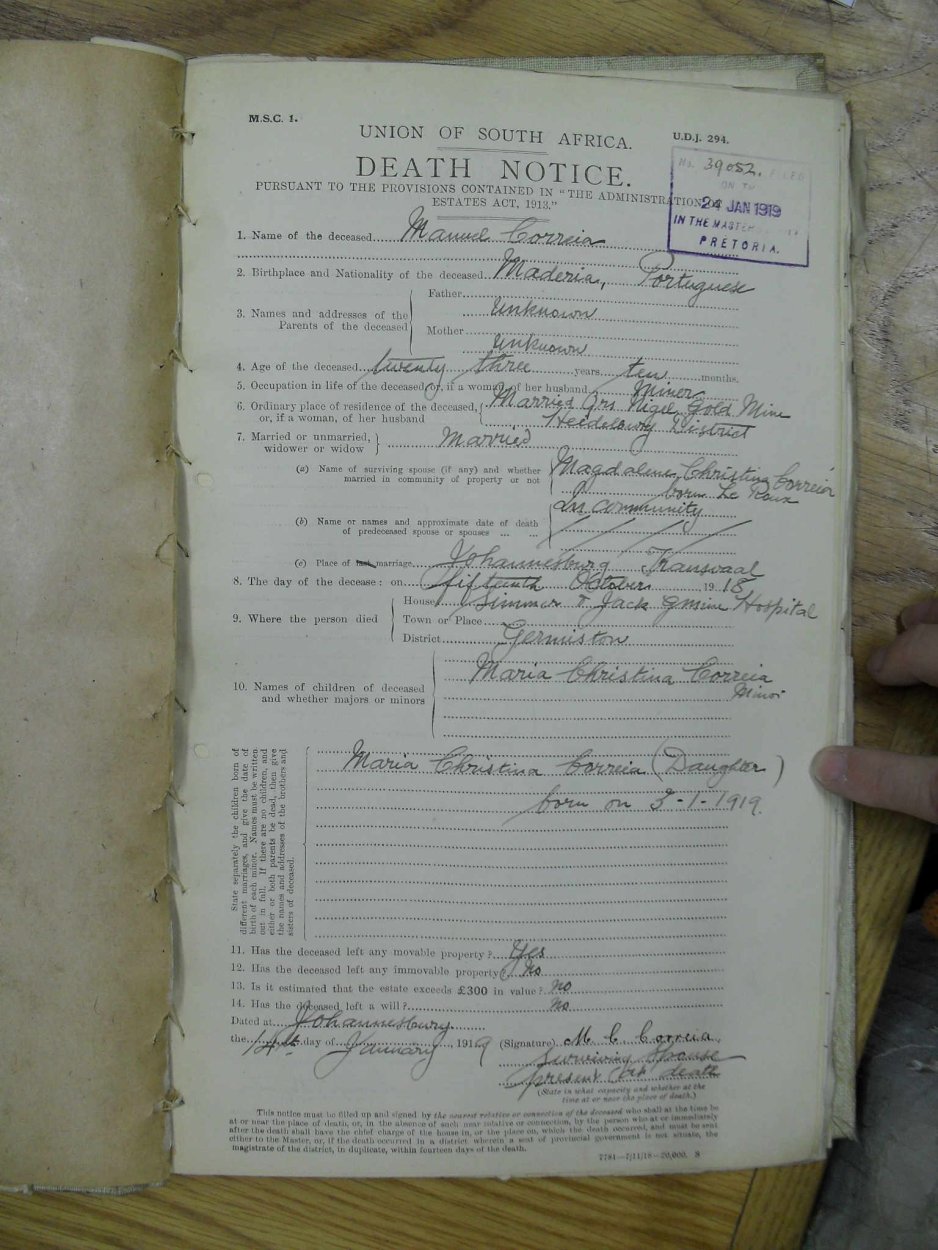 M.S.C. 1.
U.D.J. 294.
UNION OF SOUTH AFRICA.
DEATH NOTICE.
PURSUANT TO THE PROVISIONS CONTAINED IN "THE ADMINISTRATION OF
ESTATES ACT, 1913."
No. 39052. FILED
ON THE
24 JAN 1919
IN THE MASTER
PRETORIA.
1. Name of the deceased Manuel Correia
2. Birthplace and Nationality of the deceased Maderia, Portuguese
3. Names and addresses of the Parents of the deceased
Father
Unknown
Mother
Unknown
4. Age of the deceased twenty three years ten months.
5. Occupation in life of the deceased, or, if a woman, of her husband Miner
6. Ordinary place of residence of the deceased, Married Qrs Nigel Gold Mine
or, if a woman, of her husband Heidelburg District
7. Married or unmarried, widower or widow Married
(a) Name of surviving spouse (if any) and whether married in community of property or not
Magdalene Christina Correia
born Le Roux
In community
(b) Name or names and approximate date of death
of predeceased spouse or spouses ... ...
(c) Place of last marriage Johannesburg Transvaal
8. The day of the decease: on fifteenth October 1918
9. Where the person died
House Simmer & Jack G Mine Hospital
Town or Place
District Germiston
10. Names of children of deceased and whether majors or minors
Maria Christina Correia
Minor
State separately the children born of
different marriages, and give the date of
birth of each minor. Names must be written
out in full. If there are no children, and
either or both parents be dead, then give
the names and addresses of the brothers and
sisters of deceased.
Maria Christina Correia (Daughter)
born on 3-1-1919
11. Has the deceased left any movable property? Yes
12. Has the deceased left any immovable property? No
13. Is it estimated that the estate exceeds £300 in value? No
14. Has the deceased left a will? No
Dated at Johannesburg
the 14th day of January, 1919 (Signature) M. C. Correia
Surviving Spouse
present at death
(State in what capacity and whether at the
time at or near the place of death.)
This notice must be filled up and signed by the nearest relative or connection of the deceased who shall at the time be
at or near the place of death, or, in the absence of such near relative or connection, by the person who at or immediately
after the death shall have the chief charge of the house in, or the place on, which the death occurred, and must be sent
either to the Master, or, if the death occurred in a district wherein a seat of provincial government is not situate, the
magistrate of the district, in duplicate, within fourteen days of the death.
7781—7/11/18—20,000. S